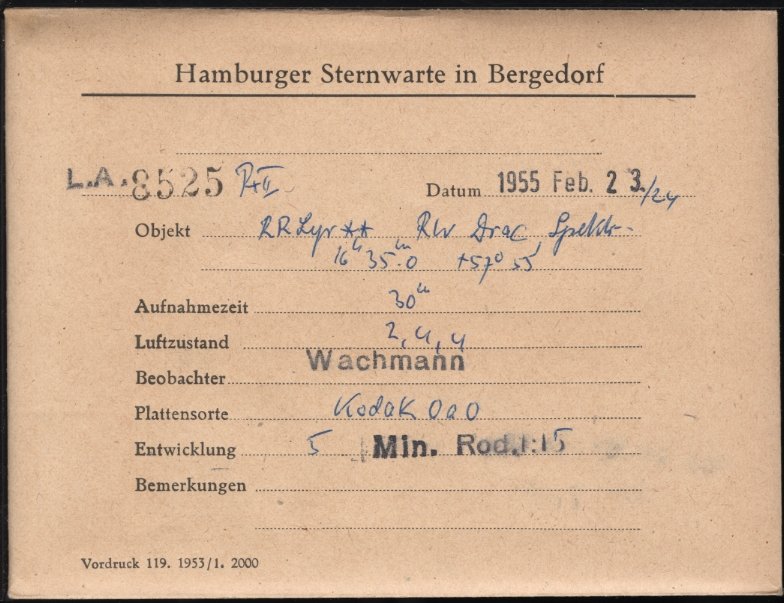 Hamburger Sternwarte in Bergedorf
L.A. 8525 P+II Datum 1955 Feb. 23./24
Objekt RR Lyr ** RW Drac, Spektr-
16h 35m.0 +57° 55'
Aufnahmezeit 30m
Luftzustand 2, 4, 4
Beobachter Wachmann
Plattensorte Kodak OaO
Entwicklung 5 Min. Rod.1:15
Bemerkungen
Vordruck 119. 1953/1. 2000